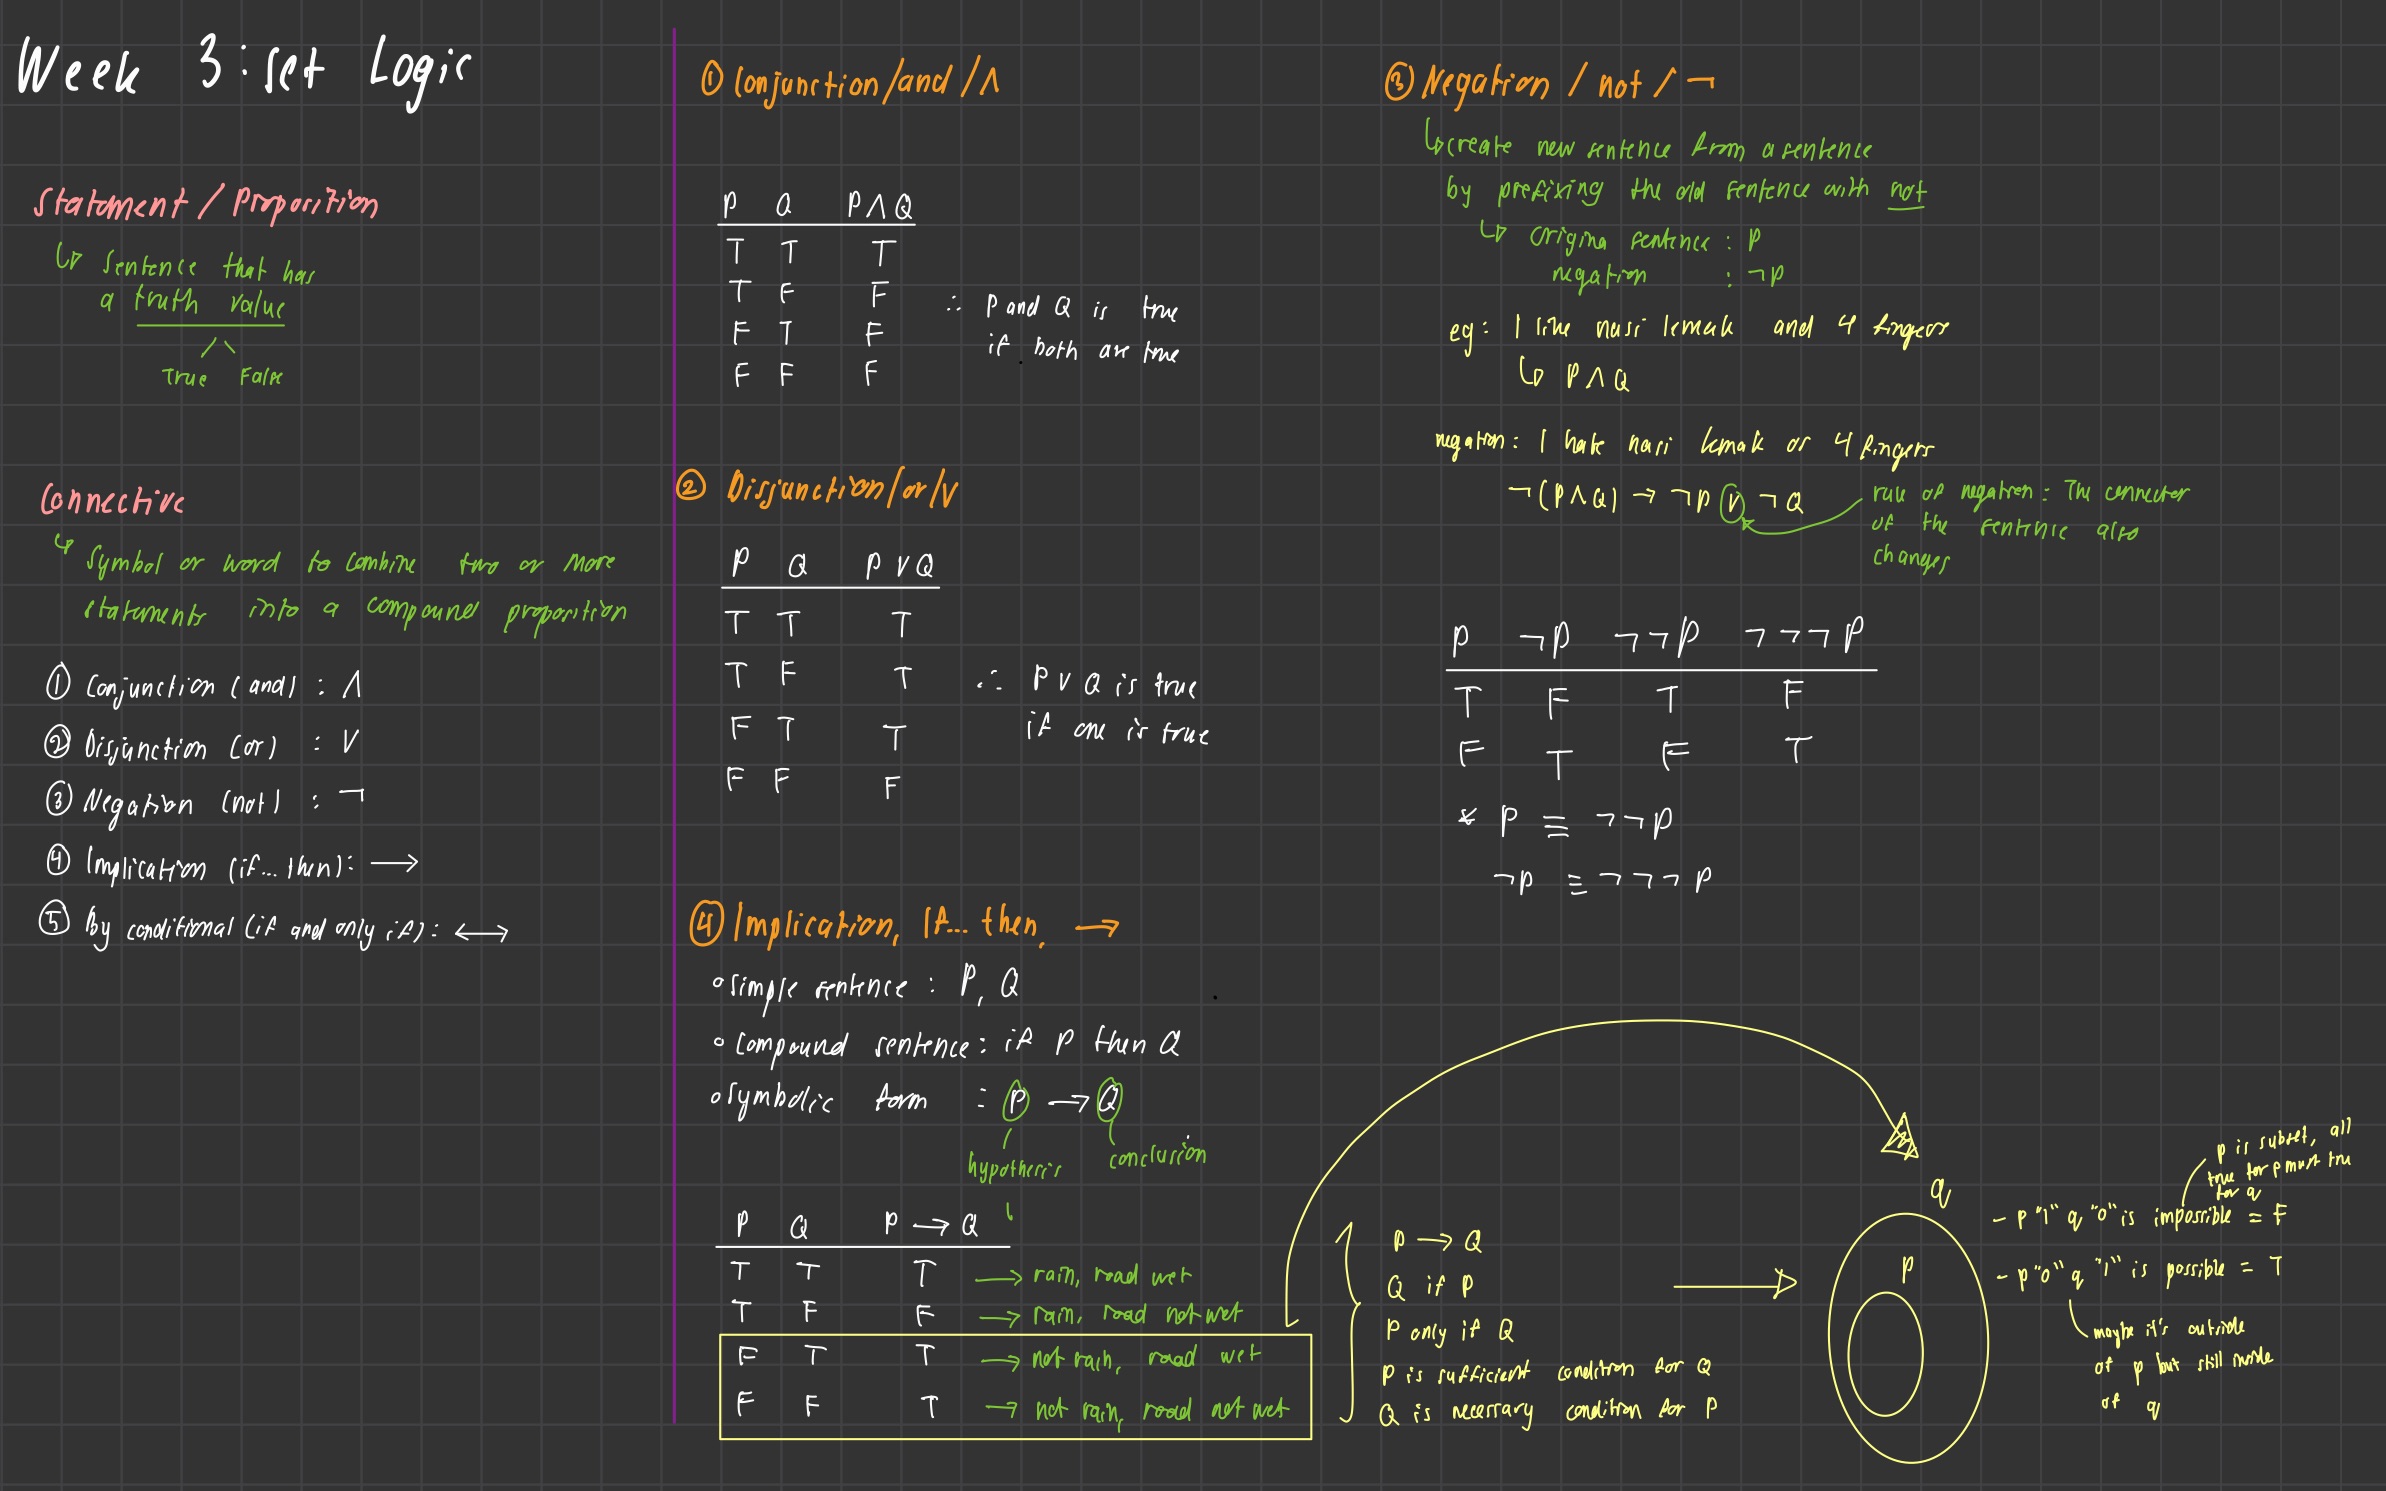 Week 3: set Logic
Statement / Proposition
↳ Sentence that has
a truth value
True False
Connective
↳ Symbol or word to combine two or more
statements into a compound proposition
① Conjunction (and) : ∧
② Disjunction (or) : ∨
③ Negation (not) : ¬
④ Implication (if...then): →
⑤ By conditional (if and only if): ↔
① Conjunction/and/∧
P Q P∧Q
T T T
T F F
F T F
F F F
∴ P and Q is true
if both are true
② Disjunction/or/∨
P Q P∨Q
T T T
T F T
F T T
F F F
∴ P∨Q is true
if one is true
④ Implication, If... then, →
simple sentence : P, Q
compound sentence: if P then Q
symbolic form : P → Q
hypothesis conclusion
P Q P → Q
T T T → rain, road wet
T F F → rain, road not wet
F T T → not rain, road wet
F F T → not rain, road not wet
③ Negation / not / ¬
↳ create new sentence from a sentence
by prefixing the old sentence with not
↳ origina sentence : P
negation : ¬P
eg: I like nasi lemak and 4 fingers
↳ P∧Q
negation: I hate nasi lemak or 4 fingers
¬(P∧Q) → ¬P ∨ ¬Q
rule of negation: The connector
of the sentence also
changes
P ¬P ¬¬P ¬¬¬P
T F T F
F T F T
* P ≡ ¬¬P
¬P ≡ ¬¬¬P
P → Q
Q if P
P only if Q
P is sufficient condition for Q
Q is necessary condition for P
q
p
p is subset, all
true for p must tru
for q
- p "1" q "0" is impossible = F
- p "0" q "1" is possible = T
maybe it's outside
of p but still inside
of q